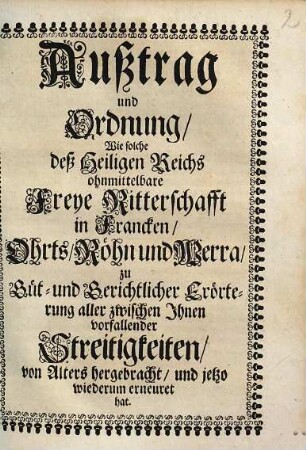 2
Außtrag
und
Ordnung/
Wie solche
deß Heiligen Reichs
ohnmittelbare
Freye Ritterschafft
in Francken/
Ohrts/Röhn und Werra/
zu
Güt- und Gerichtlicher Erörte-
rung aller zwischen Ihnen
vorfallender
Streitigkeiten/
von Alters hergebracht/ und jetzo
wiederum erneuret
hat.